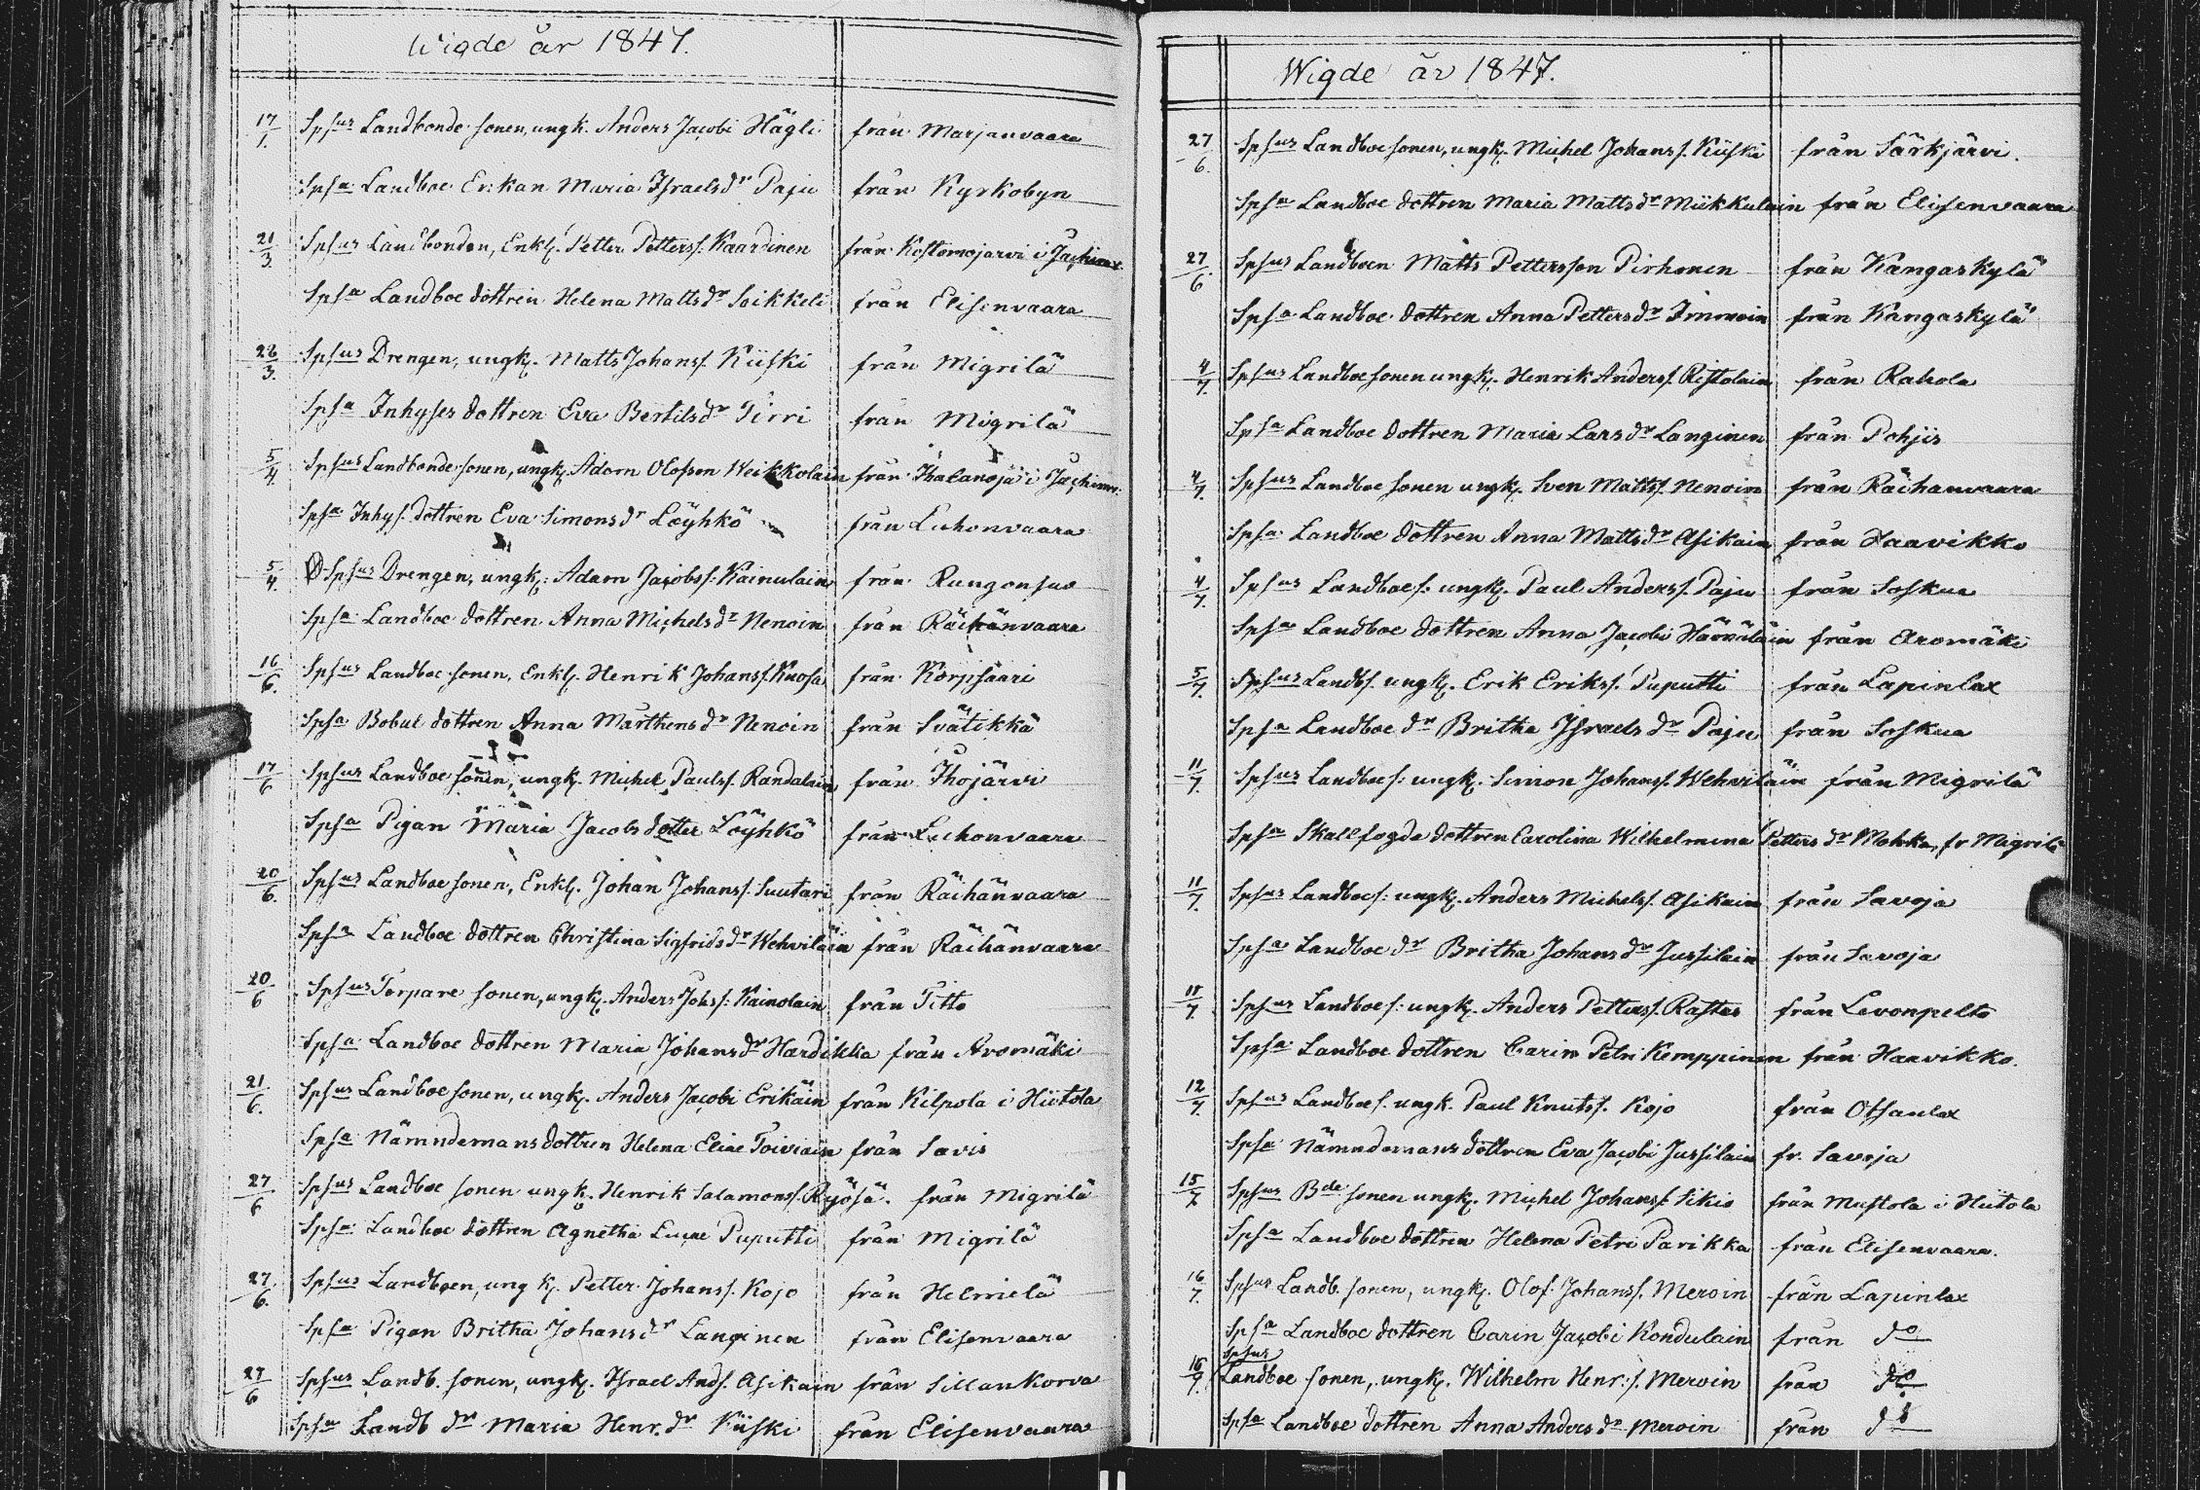 Wigde år 1847.
17/1. Spsus Landbonde sonen, ungk. Anders Jacobi Hägli från Marjanvaara
Spsa Landboe Enkan Maria Israelsdr Paju från Kyrkobyn
21/3. Spsus Landbonden, Enkl. Petter Petterss. Kaardinen från Kostomojärvi i Jachimv.
Spsa Landboe dottren Helena Mattsdr Soikkeli från Elisenvaara
28/3. Spsus Drengen, ungk. Matts Johanss. Kiiski från Migrilä
Spsa Inhyses dottren Eva Bertilsdr Tirri från Migrilä
5/4. Spsus Landbonde sonen, ungk. Adam Olofson Weikkolain från Ihalanoja i Jachimv.
Spsa Inhys. dottren Eva Simonsdr Löyhkö från Luhonvaara
5/4. Spsus Drengen, ungk. Adam Jacobss. Kainulain från Rungonsuo
Spsa Landboe dottren Anna Michelsdr Nenoin från Räihänvaara
16/6. Spsus Landboe sonen, Enkl. Henrik Johanss. Kuosa från Korpsaari
Spsa Bobul dottren Anna Marthensdr Nenoin från Svätikkä
17/6 Spsus Landboe sonen, ungk. Michel Paulss. Randalain från Ihojärvi
Spsa Pigan Maria Jacobs dotter Löyhkö från Luhonvaara
20/6. Spsus Landboe sonen, Enkl. Johan Johanss. Suutari från Räihänvaara
Spsa Landboe dottren Christina Sigfridsdr Wehviläin från Räihänvaara
20/6 Spsus Torpare sonen, ungk. Anders Johss. Kainolain från Titto
Spsa Landboe dottren Maria Johansdr Hardikka från Aromäki
21/6. Spsus Landboe sonen, ungk. Anders Jacobi Erikäin från Kilpola i Hiitola
Spsa Nämndemans dottren Helena Eliae Toiviain från Savis
27/6 Spsus Landboe sonen ungk. Henrik Salamonss. Ryösä. från Migrilä
Spsa Landboe dottren Agnetha Lucae Puputti från Migrilä
27/6. Spsus Landboen, ungk. Petter Johanss. Kojo från Helmelä
Spsa Pigan Britha Johansdr Langinen från Elisenvaara
27/6 Spsus Landb. sonen, ungk. Israel Ands. Asikain från Sillankorva
Spsa Landb dr Maria Henr. dr Kiiski från Elisenvaara
Wigde år 1847.
27/6. Spsus Landboe sonen, ungk. Michel Johanss. Kiiski från Särkjärvi.
Spsa Landboe dottren Maria Mattsdr Miikkulain från Elisenvaara
27/6 Spsus Landboen Matts Pettersson Pirhonen från Kangaskylä
Spsa Landboe dottren Anna Pettersdr Immoin från Kangaskylä
4/7. Spsus Landboe sonen ungk. Henrik Anderss. Ristolain från Rahola
Spsa Landboe dottren Maria Larsdr Langinen från Pohjis
4/7. Spsus Landboe sonen ungk. Sven Mattss. Nenoin från Räihanvaara
Spsa Landboe dottren Anna Mattsdr Asikain från Haavikko
4/7. Spsus Landboes. ungk. Paul Anderss. Paju från Soskua
Spsa Landboe dottren Anna Jacobi Härväläin från Aromäki
5/7. Spsus Landbs. ungk. Erik Erikss. Puputti från Lapinlax
Spsa Landboe dr Britha Israels dr Paju från Soskua
11/7. Spsus Landboes: ungk. Simon Johanss. Wehviläin från Migrilä
Spsa Skallfogde dottren Carolina Wilhelmina Petters dr Mohka, fr Migrilä
11/7. Spsus Landboes: ungk. Anders Michelss. Asikain från Savoja
Spsa Landboe dr Britha Johans dr Jussilain från Savoja
11/7. Spsus Landboes: ungk. Anders Petterss. Rastas från Levonpelto
Spsa Landboe dottren Carin Petri Kemppinen från Haavikko.
12/7. Spsus Landboes. ungk. Paul Knutss. Kojo från Otsanlax
Spsa Nämndemans dottren Eva Jacobi Jussilain fr. Savoja
15/7. Spsus Bde sonen ungk. Michel Johanss. Sikio från Mustola i Hiitola
Spsa Landboe dottren Helena Petri Parikka från Elisenvaara.
16/7. Spsus Landb. sonen, ungk. Olof Johanss. Meroin från Lapinlax
Spsa Landboe dottren Carin Jacobi Kondulain från do
Spsus
16/7. Landboe sonen, ungk. Wilhelm Henr: s. Meroin från do
Spsa Landboe dottren Anna Anders dr Meroin från do